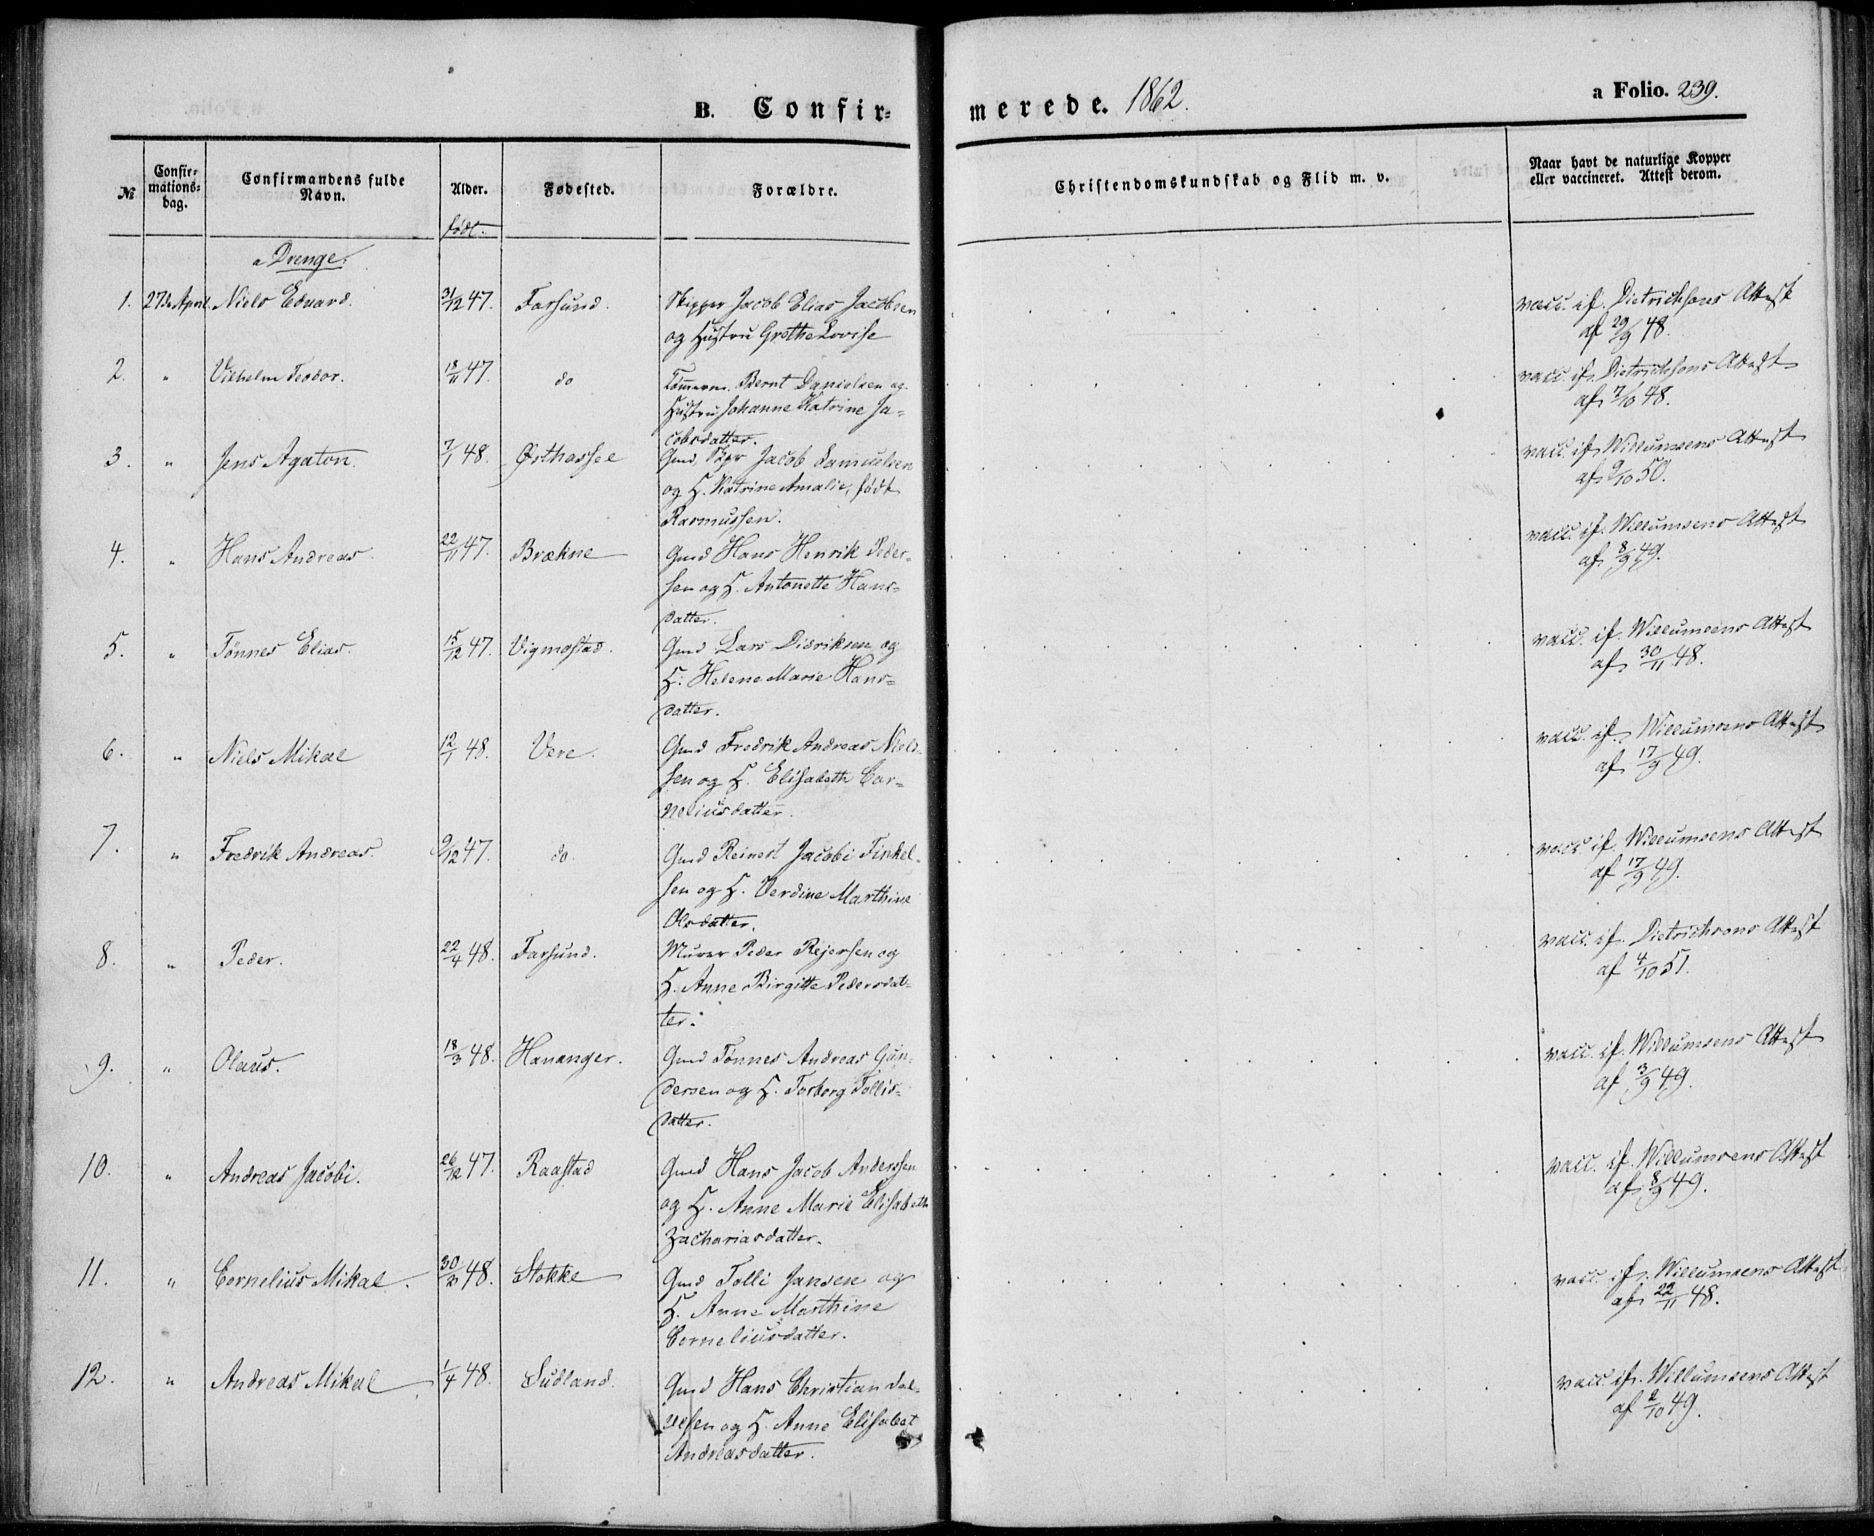 B. Confir-
merede. 1862.
a Folio. 239.
№
Confir-
mations-
dag.
Confirmandens fulde
Navn.
Alder.
født.
Fødested.
Forældre.
Christendomskundskab og Flid m. v.
Naar havt de naturlige Kopper
eller vaccineret. Attest derom.
a Drenge.
1. 27de April. Niels Edvard. 31/12 47. Farsund. Skipper Jacob Elias Jacobsen
og Hustru Grethe Lovise
vacc. if. Dietrichsons Attest
af 29/9 48.
2. " Vilhelm Teodor. 18/11 47. do Tømmerm. Bernt Danielsen og
Hustru Johanne Katrine Ja-
cobsdatter.
vacc. if. Dietrichsons Attest
af 7/10 48.
3. " Jens Agaton. 7/1 48. Østhassel Gmd, Skpr Jacob Samuelsen
og H. Katrine Amalie, født
Rasmussen.
vacc. if. Willumsens Attest
af 9/10 50.
4. " Hans Andreas 22/11 47. Brækne Gmd Hans Henrik Peder-
sen og H. Antonette Hans-
datter.
vacc. if. Willumsens Attest
af 8/9 49.
5. " Tønnes Elias. 15/12 47. Vigmostad. Gmd Lars Didriksen og
H. Helene Marie Hans-
datter.
vacc. if. Willumsens Attest
af 30/11 48.
6. " Niels Mikal 12/1 48. Vere. Gmd Fredrik Andreas Niel-
sen og H. Elisabeth Cor-
neliusdatter.
vacc. if. Willumsens Attest
af 17/9 49.
7. " Fredrik Andreas. 9/12 47. do. Gmd Reinert Jacobi Finkel-
sen og H. Verdine Marthine
Olsdatter.
vacc if. Willumsens Attest
af 17/9 49.
8. " Peder. 22/4 48. Farsund. Murer Peder Rejersen og
H. Anne Birgitte Pedersdat-
ter.
vacc. if. Dietrichsons Attest
af 4/10 51.
9. " Olaus. 18/3 48. Hananger. Gmd Tønnes Andreas Gun-
dersen og H. Torborg Tollis-
datter.
vacc. if. Willumsens Attest
af 3/9 49.
10. " Andreas Jacobi. 26/12 47. Raastad Gmd Hans Jacob Anderssen
og H. Anne Marie Elisabeth
Zachariasdatter.
vacc. if. Willumsens Attest
af 8/9 49.
11. " Cornelius Mikal. 30/3 48. Stokke Gmd Tolli Jansen og
H. Anne Marthine
Corneliusdatter.
vacc. if. Willumsens Attest
af 22/11 48.
12. " Andreas Mikal 1/4 48. Sudland. Gmd Hans Christian
og H. Anne Elisabet
Andreasdatter.
vacc. if. Willumsens Attest
af 2/10 49.